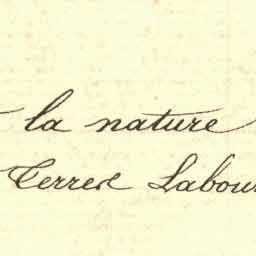 la nature
Terres Labour